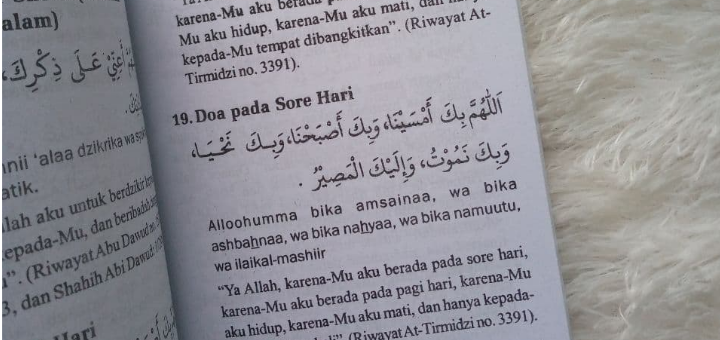 alam)
أَعِنِّيْ عَلَى ذِكْرِكَ،
nii 'alaa dzikrika wa
atik.
lah aku untuk berdzikir
epada-Mu, dan
(Riwayat Abu Dawud
3, dan Shahih Abi Dawud:
Hari
karena-Mu aku berada
Mu aku hidup, karena-Mu aku mati, dan
kepada-Mu tempat dibangkitkan". (Riwayat At-
Tirmidzi no. 3391).
19. Doa pada Sore Hari
اَللّٰهُمَّ بِكَ أَمْسَيْنَا، وَبِكَ أَصْبَحْنَا، وَبِكَ نَحْيَا،
وَبِكَ نَمُوْتُ، وَإِلَيْكَ الْمَصِيْرُ .
Alloohumma bika amsainaa, wa bika
ashbahnaa, wa bika nahyaa, wa bika namuutu,
wa ilaikal-mashiir
"Ya Allah, karena-Mu aku berada pada sore hari,
karena-Mu aku berada pada pagi hari, karena-Mu
aku hidup, karena-Mu aku mati, dan hanya kepada-
(Riwayat At-Tirmidzi no. 3391).